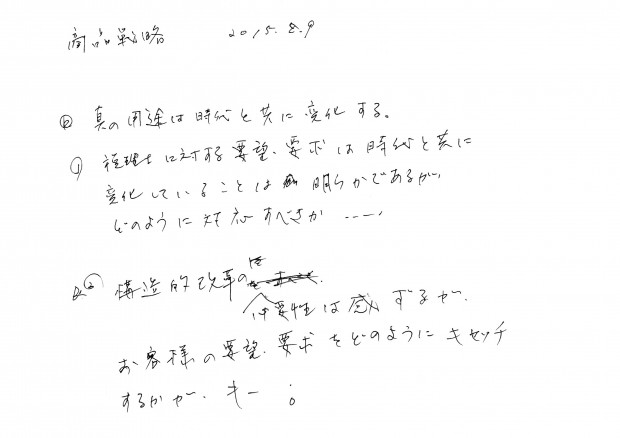 商品戦略 2015.8.9
真の用途は時代と共に変化する。
① 税理士に対する要望、要求は時代と共に
変化していることは 明らかであるが、
どのように対応すべきか……
② 構造的改革の
必要性は感ずるが、
お客様の要望、要求をどのようにキャッチ
するかが、キー。